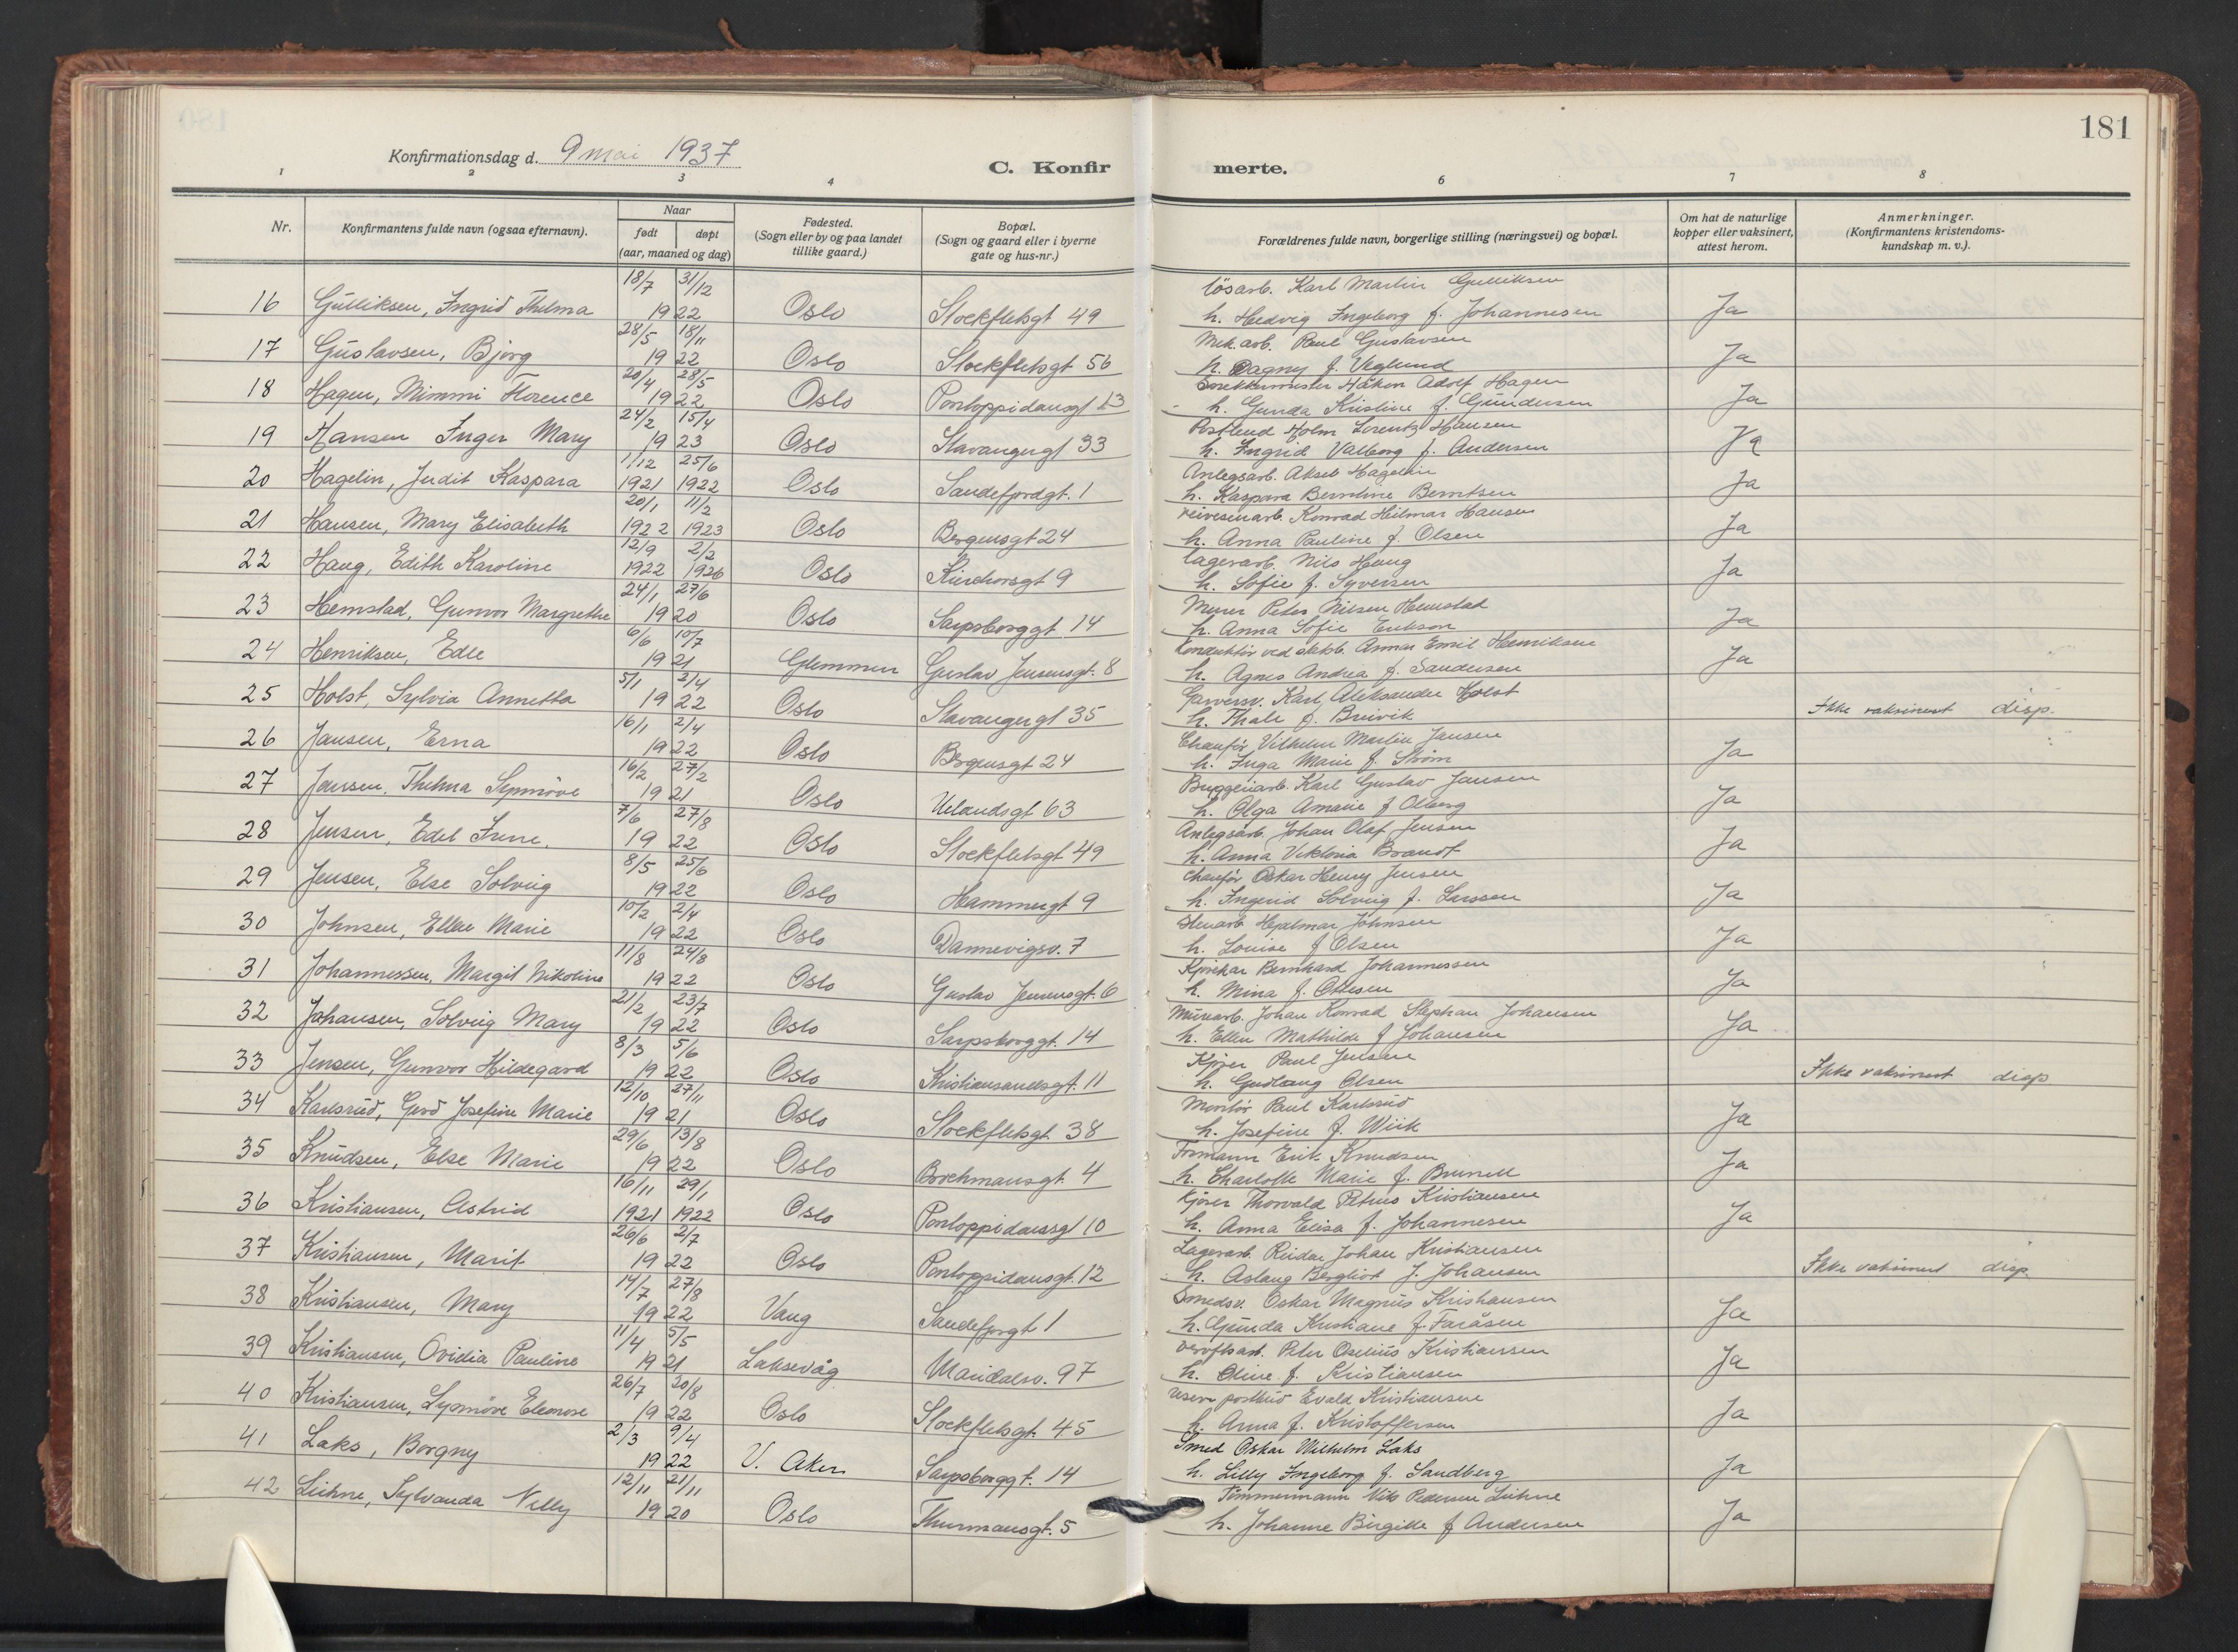 181
Konfirmationsdag d. 9 mai 1937
C. Konfir merte.
1 2 3 4 6 7 8
Nr.
Konfirmantens fulde navn (ogsaa efternavn).
Naar
født døpt
(aar, maaned og dag)
Fødested.
(Sogn eller by og paa landet
tillike gaard.)
Bopæl.
(Sogn og gaard eller i byerne
gate og hus-nr.)
Forældrenes fulde navn, borgerlige stilling (næringsvei) og bopæl.
Om hat de naturlige
kopper eller vaksinert,
attest herom.
Anmerkninger.
(Konfirmantens kristendoms-
kundskap m. v.).
18/7 31/12 løsarb. Karl Martin Gulliksen
16 Gulliksen, Ingrid Thelma 1922 Oslo Stockfletsgt 49 h. Hedvig Ingeborg f. Johannesen Ja
28/5 18/11 Mek. arb. Paul Gustavsen
17 Gustavsen, Bjørg 1922 Oslo Stockfletsgt 56 h. Dagny f. Veglund Ja
20/4 28/5 Snekkermester Håkon Adolf Hagen
18 Hagen, Mimmi Florence 1922 Oslo Pontoppidansgt 13 h. Gunda Kristine f. Gundersen Ja
24/2 15/4 Holm Lorentz Hansen
19 Hansen Inger Mary 1923 Oslo Stavangergt 33 h. Ingrid Valborg f. Andersen Ja
1/12 25/6 Anlegsarb. Aksel Hagelin
20 Hagelin, Judit Kaspara 1921 1922 Oslo Sandefjordgt. 1 h. Kaspara Berntine Berntsen Ja
20/1 11/2 veivesenarb. Konrad Hilmar Hansen
21 Hansen, Mary Elisabeth 1922 1923 Oslo Bergensgt 24 h. Anna Pauline f. Olsen Ja
12/9 2/2 lagerarb. Nils Haug
22 Haug, Edith Karoline 1922 1926 Oslo 9 h. Sofie f. Syversen Ja
24/1 27/6 Murer Peter Nilsen Hemstad
23 Hemstad, Gunvor Margrethe 1920 Oslo Sarpsborggt 14 h. Anna Sofie Erikson Ja
6/6 10/7 Konduktør ved Annar Emil Henriksen
24 Henriksen, Edle 1921 Glemmen Gustav Jensensgt. 8 h. Agnes Andrea f. Sandersen Ja
5/1 2/4 Garversv. Karl Aleksander Holst
25 Holst, Sylvia Annetta 1922 Oslo Stavangergt 35 h. Thale f. Breivik Ikke vaksinert disp.
16/1 2/4 Chaufør Vilhelm Martin Jansen
26 Jansen, Erna 1922 Oslo Bergensgt 24 h. Inga Marie f. Strøm Ja
16/2 27/2 Bryggeriarb. Karl Gustav Jansen
27 Janssen, Thelma Synnøve 1921 Oslo Uelandsgt 63 h. Olga Amarie f Olberg Ja
7/6 27/8 Anlegsarb. Johan Olaf Jensen
28 Jensen, Edel Irene. 1922 Oslo Stockfletsgt 49 h. Anna Viktoria Brandt Ja
8/5 25/6 chaufør Oskar Henry Jensen
29 Jensen, Else Solveig 1922 Oslo Hammergt 9 h. Ingrid Solveig f. Larssen Ja
10/2 2/4 Stenarb. Hjalmar Johnsen
30 Johnsen, Ellen Marie 1922 Oslo Dannevigsv. 7 h. Louise f Olsen Ja
11/8 24/8 Bernhard Johannessen
31 Johannessen, Margit Nikoline 1922 Oslo Gustav Jensensgt. 6 h. Mina f. Ottesen Ja
21/2 23/7 Murarb. Johan Konrad Stephan Johansen
32 Johansen, Solveig Mary 1922 Oslo Sarpsborggt. 14 h. Ellen Mathilde f Johansen Ja
8/3 5/6 Kjører Paul Jensen
33 Jensen, Gunvor Hildegard 1922 Oslo Kristiansandsgt. 11 h. Gudlaug Olsen Ikke vaksinert disp
12/10 27/11 Montør Paul Karlsrud
34 Karlsrud, Gerd Josefine Marie 1921 Oslo Stockfletsgt. 38 h. Josefine f. Wiik Ja
29/6 13/8 Formann Erik Knudsen
35 Knudsen, Else Marie 1922 Oslo Brochmansgt. 4 h. Charlotte Marie f. Brunell Ja
16/11 29/1 Kjører Thorvald Petrus Kristiansen
36 Kristiansen, Astrid 1921 1922 Oslo Pontoppidansgt 10 h. Anna Elisa f. Johannesen Ja
26/6 2/7 Lagerarb. Reidar Johan Kristiansen
37 Kristiansen, Marit 1922 Oslo Pontoppidansgt. 12 h. Aslaug Bergliot f. Johansen Ikke vaksinert disp.
14/7 27/8 Smedsv. Oskar Magnus Kristiansen
38 Kristiansen, Mary 1922 Vang Sandefjorgt 1 h. Gunda Kristiane f. Faråsen Ja
11/4 5/5 Verftsarb. Peter Oselius Kristiansen
39 Kristiansen, Ovidia Pauline 1921 Laksevåg Maridalsv. 97 h. Oline f. Kristiansen Ja
26/7 20/8 reserve postbud Evald Kristiansen
40 Kristiansen, Synnøve Eleonore 1922 Oslo Stockfletsgt. 45 h. Anna f. Kristoffersen Ja
2/3 9/4 Smed Oskar Wilhelm Laks
41 Laks, Borgny 1922 V. Aker Sarpsborggt. 14 h. Lilly Ingeborg f. Sandberg Ja
12/11 21/11 Tømmermann Nils Pedersen Liehne
42 Liehne, Sylvanda Nelly 1920 Oslo Thurmansgt. 5 h. Johanne Birgitte f Andersen Ja